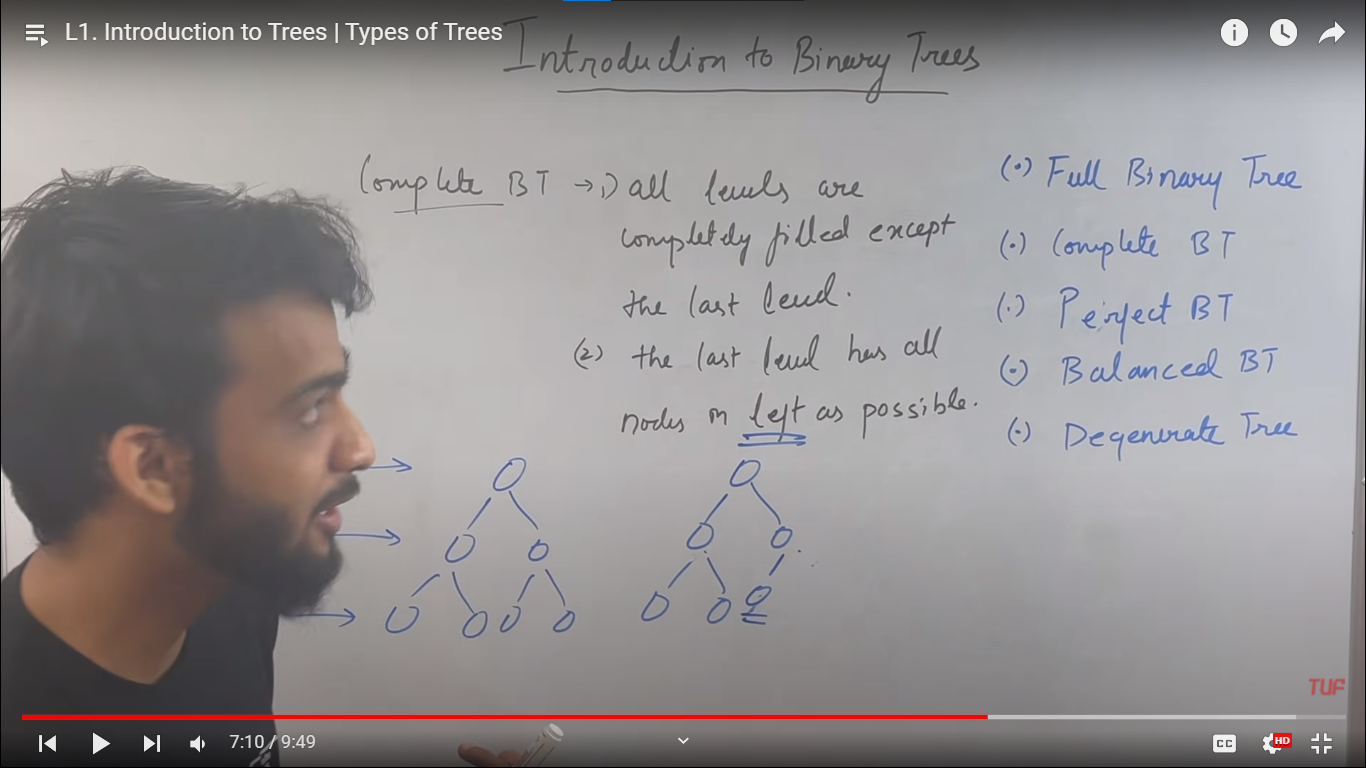 L1. Introduction to Trees | Types of Trees
Introduction to Binary Trees
Complete BT → 1) all levels are
completely filled except
the last level.
(2) the last level has all
nodes on left as possible.
(·) Full Binary Tree
(·) Complete BT
(·) Perfect BT
(·) Balanced BT
(·) Degenerate Tree
TUF
7:10 / 9:49
CC
HD